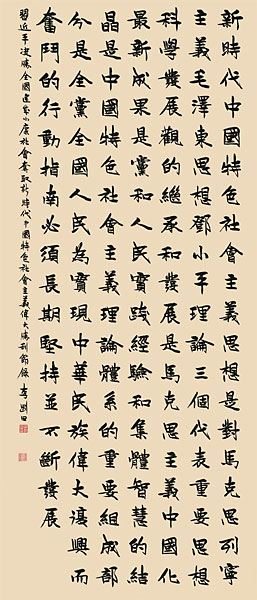 新時代中國特色社會主義思想是對馬克思列寧
主義毛澤東思想鄧小平理論三個代表重要思想
科學發展觀的繼承和發展是馬克思主義中國化
最新成果是黨和人民實踐經驗和集體智慧的結
晶是中國特色社會主義理論體系的重要組成部
分是全黨全國人民為實現中華民族偉大復興而
奮鬥的行動指南必須長期堅持並不斷發展
習近平決勝全面建成小康社會奪取新時代中國特色社會主義偉大勝利節錄 李剛田